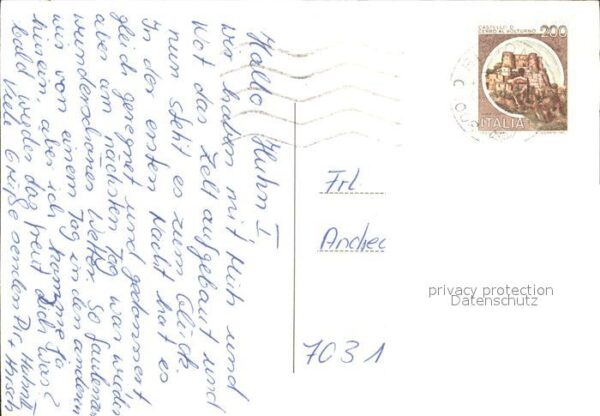 Hallo Huhn I
wir haben mit Müh und
Not das Zelt aufgebaut und
nun steht es zum Glück.
In der ersten Nacht hat es
gleich geregnet und gedonnert
aber am nächsten Tag war wieder
wunderschönes Wetter. So faulenzen
wir von einem Tag in den anderen
hinein, aber ich komme ja
bald wieder das freut Dich was?
Viele Grüße senden Dir Huhn II
+ Hirsch
CASTELLO DI
CERRO AL VOLTURNO
200
ITALIA
Frl.
Andrea
privacy protection
Datenschutz
7031